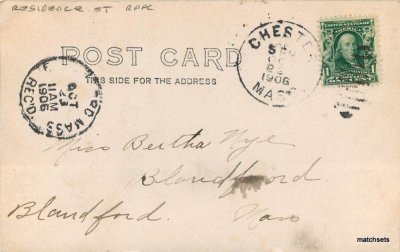 RESIDENCE ST RPPC
POST CARD
THIS SIDE FOR THE ADDRESS
CHESTER
1906
MASS
OCT
23
11 AM
1906
MASS
REC'D.
Miss Bertha Nye
Blandford
Blandford. Mass
matchsets